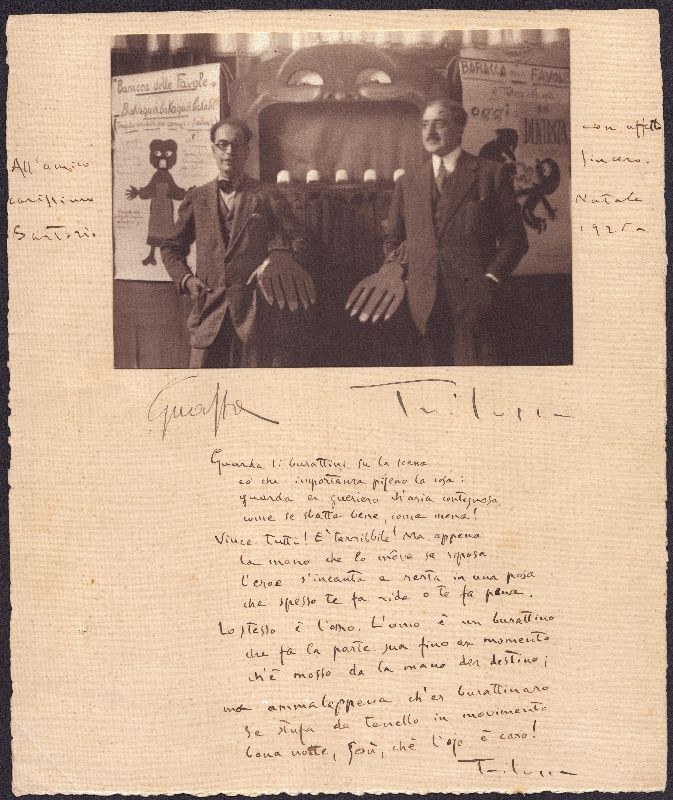 Baracca delle Favole
Bataquabataquabatabà
BARACCA DELLE FAVOLE
oggi:
All'amico
carissimo
Sartorio
con affetto
sincero.
Natale
Guasta
Trilussa
Guarda li burattini su la scena
co' che importanza pijeno la cosa:
guarda er gueriero d'aria contegnosa,
come se sbatte bene, come mena!
Vince tutti! E' terribbile! Ma appena
la mano che lo move se riposa
l'eroe s'incanta e resta in una posa
che spesso te fa ride o te fa pena.
Lo stesso è l'omo. L'omo è un burattino
che fa la parte sua fino ar momento
ch'è mosso da la mano der destino;
ma ammalappena ch'er burattinaro
se stufa de tenello in movimento
bona notte, Gesù, chè l'ojo è caro!
Trilussa